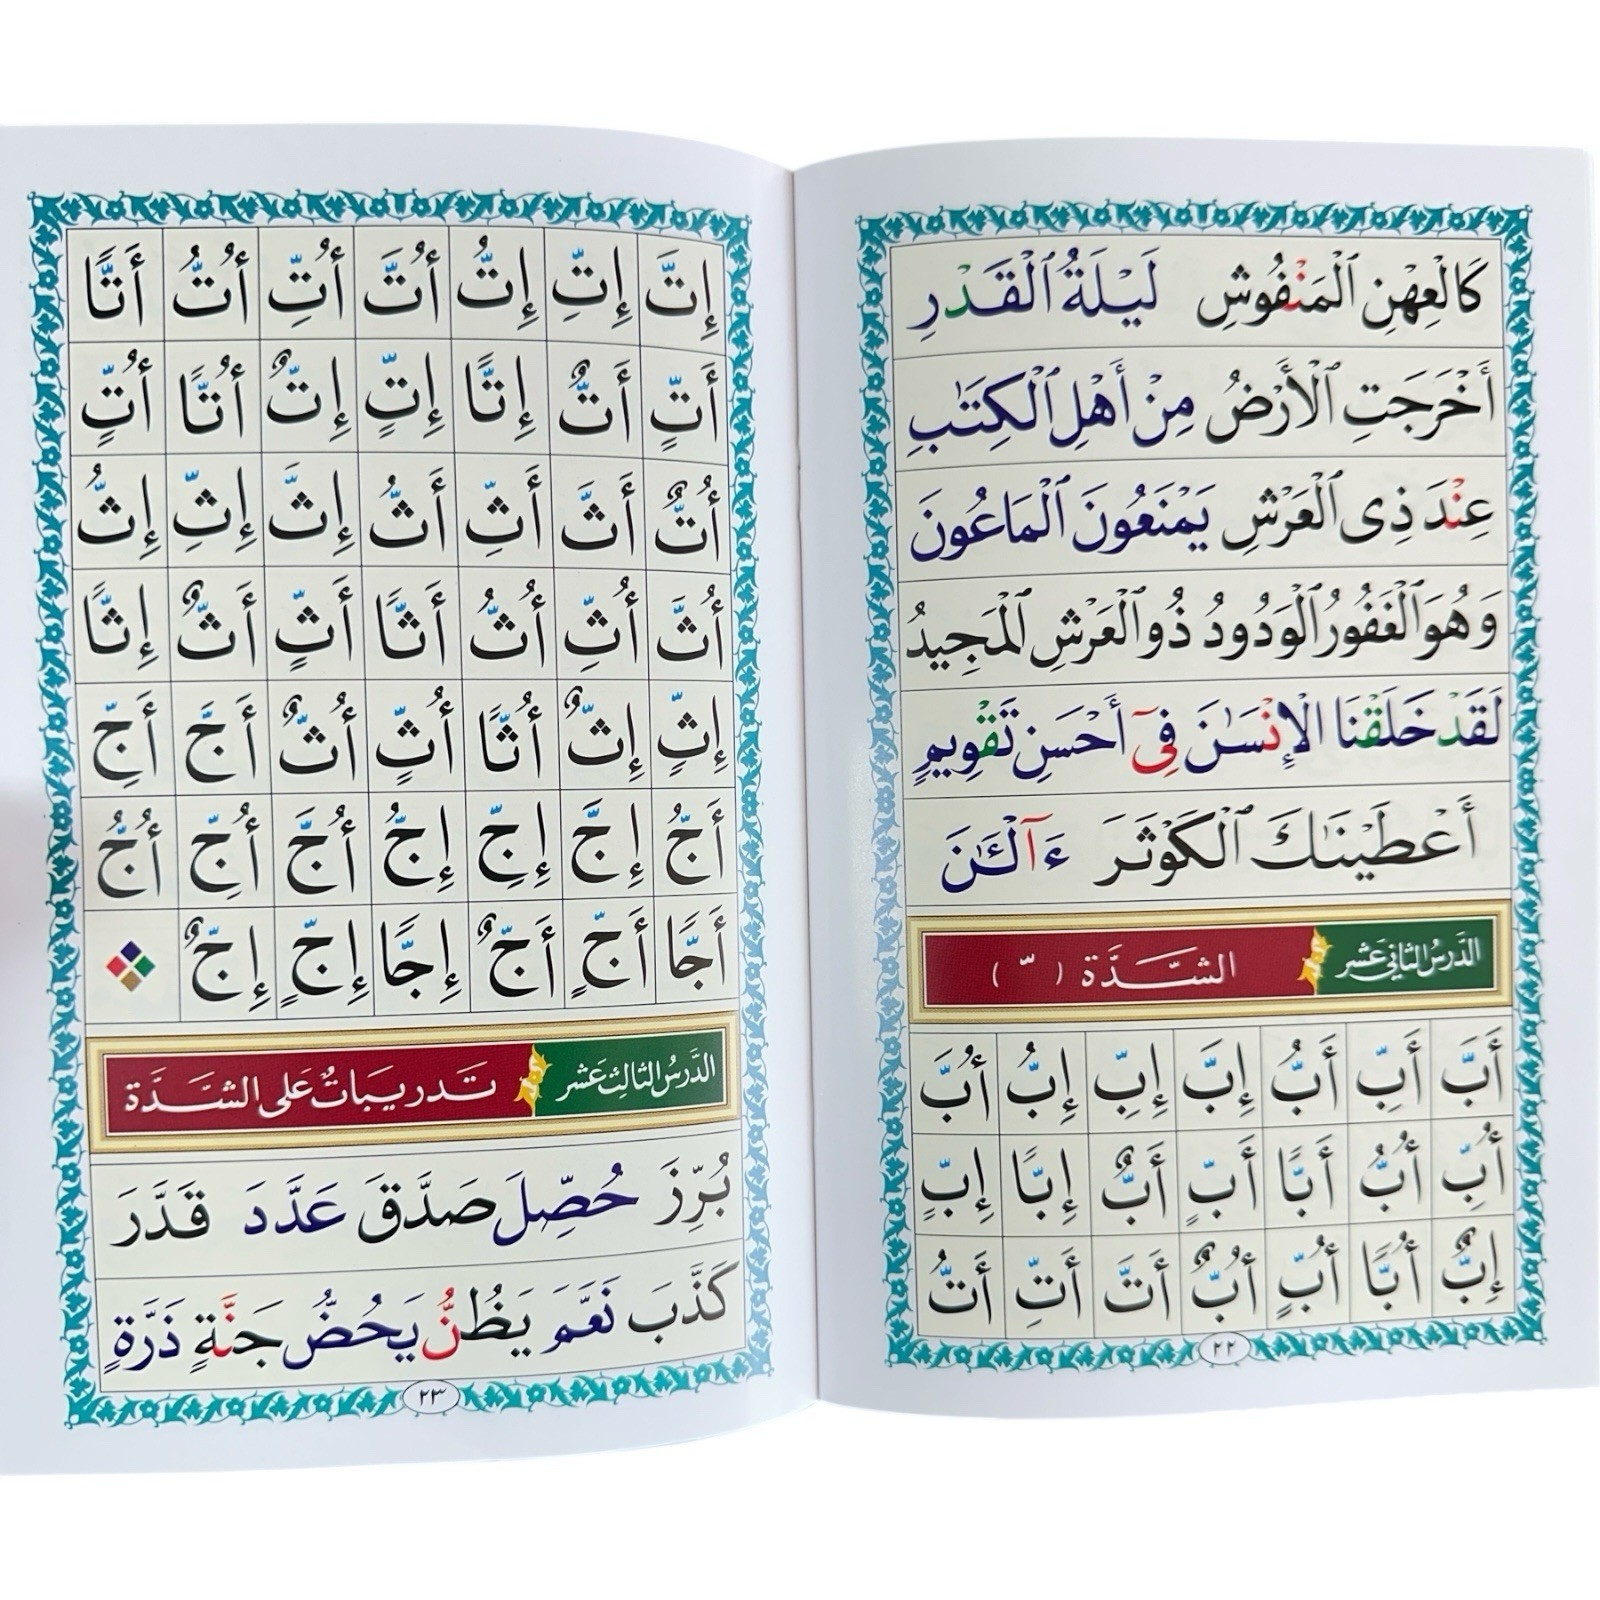 كَٱلْعِهْنِ ٱلْمَنفُوشِ لَيْلَةُ ٱلْقَدْرِ
أَخْرَجَتِ ٱلْأَرْضُ مِنْ أَهْلِ ٱلْكِتَٰبِ
عِندَ ذِى ٱلْعَرْشِ يَمْنَعُونَ ٱلْمَاعُونَ
وَهُوَ ٱلْغَفُورُ ٱلْوَدُودُ ذُو ٱلْعَرْشِ ٱلْمَجِيدُ
لَقَدْ خَلَقْنَا ٱلْإِنسَٰنَ فِىٓ أَحْسَنِ تَقْوِيمٍ
أَعْطَيْنَٰكَ ٱلْكَوْثَرَ ءَآلْـَٰٔنَ
الدَّرْسُ الثَّانِي عَشَر الشَّدَّة ( ّ )
أَبَّ أَبِّ أَبُّ إِبَّ إِبِّ إِبُّ أُبَّ
أُبِّ أُبُّ أَبًّا أَبٍّ أَبٌّ إِبًّا إِبٍّ
إِبٌّ أُبًّا أُبٍّ أُبٌّ أَتَّ أَتِّ أَتُّ
٢٢
إِتَّ إِتِّ إِتُّ أُتَّ أُتِّ أُتُّ أَتًّا
أَتٍّ أَتٌّ إِتًّا إِتٍّ إِتٌّ أُتًّا أُتٍّ
أُتٌّ أَثَّ أَثِّ أَثُّ إِثَّ إِثِّ إِثُّ
أُثَّ أُثِّ أُثُّ أَثًّا أَثٍّ أَثٌّ إِثًّا
إِثٍّ إِثٌّ أُثًّا أُثٍّ أُثٌّ أَجَّ أَجِّ
أَجُّ إِجَّ إِجِّ إِجُّ أُجَّ أُجِّ أُجُّ
أَجًّا أَجٍّ أَجٌّ إِجًّا إِجٍّ إِجٌّ
الدَّرْسُ الثَّالِث عَشَر تَدْرِيبَاتٌ عَلَى الشَّدَّة
بُرِّزَ حُصِّلَ صَدَّقَ عَدَّدَ قَدَّرَ
كَذَّبَ نَعَّمَ يَظُنُّ يَحُضُّ جَنَّةٍ ذَرَّةٍ
٢٣